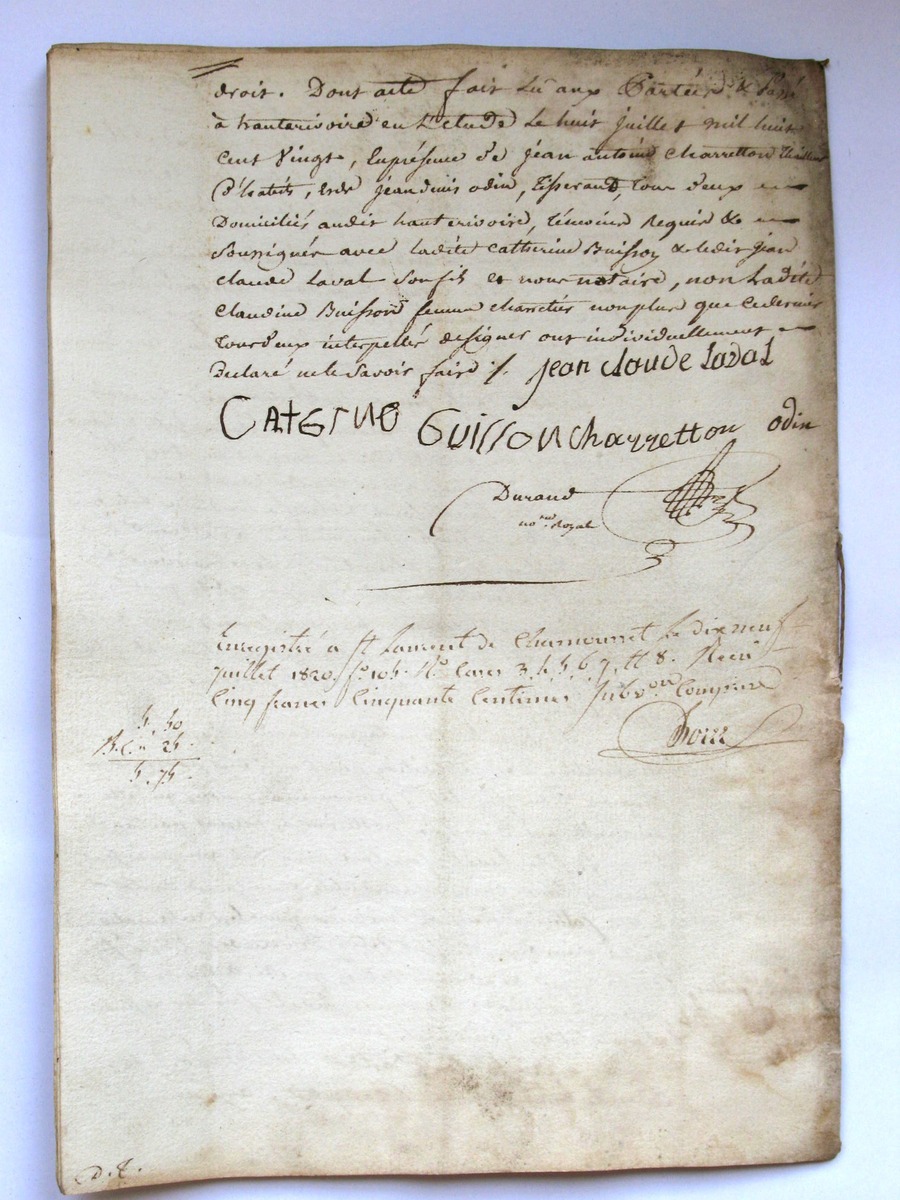 droit. Dont acte fait Lu aux Parties & Passé
à hauterivoire en L'etude Le huit juillet mil huit
cent Vingt, En présence de jean antoine charretton tailleur
d'habits, et de jean denis odin, tisserand, tous deux
Domiciliés audit hauterivoire, témoins Requis &
Soussignés avec ladite catherine Buisson & ledit jean
claude Laval son fils et nous notaire, non Ladite
claudine Buisson femme charretier non plus que ce dernier
tous deux interpellés de signer ont individuellement
Déclaré ne le savoir faire ./. jean claude Laval
CATERINE GUISSON charretton odin
Durand
no.re Royal
Enregistré à St Laurent de Chamousset Le dix neuf
juillet 1820. f° 106. R° Cases 3, 4, 5, 6, 7, et 8. Reçu
Cinq francs Cinquante Centimes Subv.on Comprise
5. 50
25.
5. 75